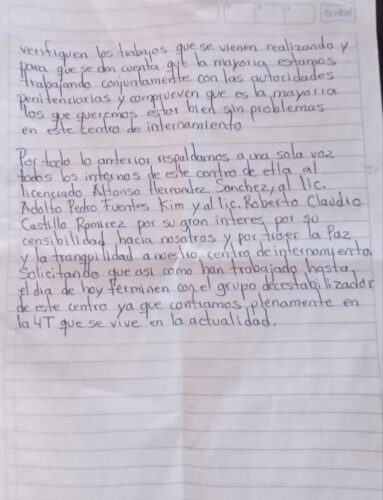 Scribe
verifiquen los trabajos que se vienen realizando y
para que se den cuenta que la mayoria estamos
trabajando conjuntamente con las autoridades
penitenciarias y comprueven que es la mayoria
los que queremos estar bien sin problemas
en este centro de internamiento
Por todo lo anterior respaldamos a una sola voz
todos los internos de este centro de etla al
licenciado Alfonso Hernandez Sanchez, al lic.
Adolfo Pedro Fuentes Kim y al lic. Roberto Claudio
Castillo Ramirez por su gran interes por su
censibilidad hacia nosotros y por traer la Paz
y la tranquilidad a nuestro centro de internamiento,
Solicitando que asi como han trabajado hasta
el dia de hoy terminen con el grupo decestabilizador
de este centro ya que confiamos plenamente en
la 4T que se vive en la actualidad.